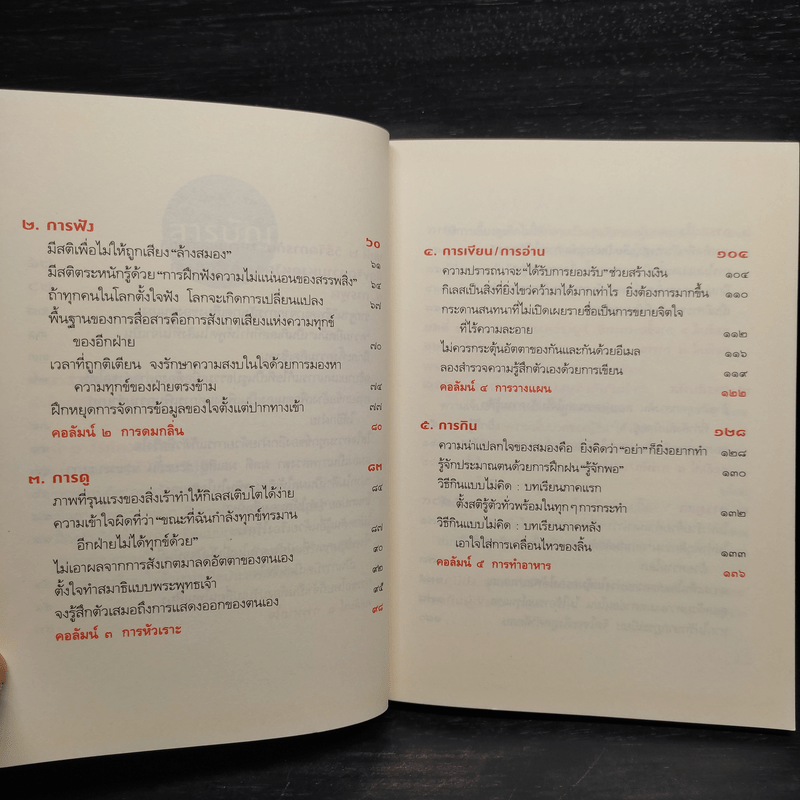 ๒. การฟัง ๖๐
มีสติเพื่อไม่ให้ถูกเสียง “ล้างสมอง” ๖๑
มีสติตระหนักรู้ด้วย “การฝึกฟังความไม่แน่นอนของสรรพสิ่ง” ๖๔
ถ้าทุกคนในโลกตั้งใจฟัง โลกจะเกิดการเปลี่ยนแปลง ๖๗
พื้นฐานของการสื่อสารคือการสังเกตเสียงแห่งความทุกข์
ของอีกฝ่าย ๗๐
เวลาที่ถูกติเตียน จงรักษาความสงบในใจด้วยการมองหา
ความทุกข์ของฝ่ายตรงข้าม ๗๔
ฝึกหยุดการจัดการข้อมูลของใจตั้งแต่ปากทางเข้า ๗๗
คอลัมน์ ๒ การดมกลิ่น ๘๐
๓. การดู ๘๓
ภาพที่รุนแรงของสิ่งเร้าทำให้กิเลสเติบโตได้ง่าย ๘๔
ความเข้าใจผิดที่ว่า “ขณะที่ฉันกำลังทุกข์ทรมาน
อีกฝ่ายไม่ได้ทุกข์ด้วย” ๘๗
ไม่เอาผลจากการสังเกตมาลดอัตตาของตนเอง ๙๐
ตั้งใจทำสมาธิแบบพระพุทธเจ้า ๙๒
จงรู้สึกตัวเสมอถึงการแสดงออกของตนเอง ๙๕
คอลัมน์ ๓ การหัวเราะ ๙๘
๔. การเขียน/การอ่าน ๑๐๔
ความปรารถนาจะ “ได้รับการยอมรับ” ช่วยสร้างเงิน ๑๐๔
กิเลสเป็นสิ่งที่ยิ่งไขว่คว้ามาได้มากเท่าไร ยิ่งต้องการมากขึ้น ๑๑๐
กระดานสนทนาที่ไม่เปิดเผยรายชื่อเป็นการขยายจิตใจ
ที่ไร้ความละอาย ๑๑๒
ไม่ควรกระตุ้นอัตตาของกันและกันด้วยอีเมล ๑๑๖
ลองสำรวจความรู้สึกตัวเองด้วยการเขียน ๑๑๙
คอลัมน์ ๔ การวางแผน ๑๒๒
๕. การกิน ๑๒๘
ความน่าแปลกใจของสมองคือ ยิ่งคิดว่า “อย่า” ก็ยิ่งอยากทำ ๑๒๘
รู้จักประมาณตนด้วยการฝึกฝน “รู้จักพอ” ๑๓๐
วิธีกินแบบไม่คิด : บทเรียนภาคแรก
ตั้งสติรู้ตัวทั่วพร้อมในทุก ๆ การกระทำ ๑๓๒
วิธีกินแบบไม่คิด : บทเรียนภาคหลัง
เอาใจใส่การเคลื่อนไหวของลิ้น ๑๓๓
คอลัมน์ ๕ การทำอาหาร ๑๓๖